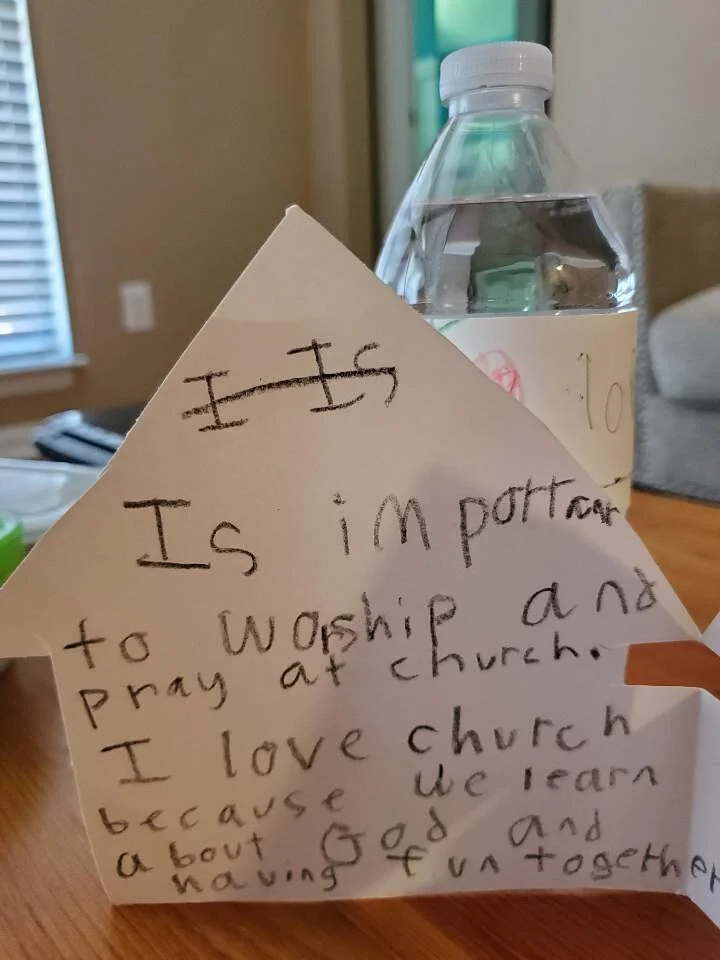 I Is
Is important
to worship and
pray at church.
I love church
because we learn
about God and
having fun together
10